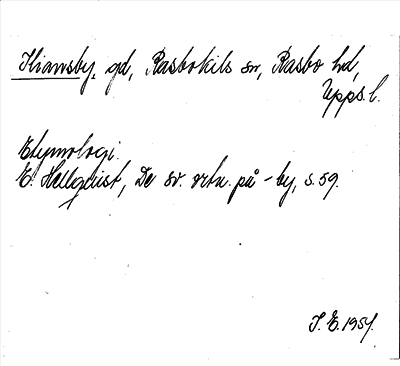 Kiamsby, gd, Rasbokils sn, Rasbo hd,
Upps. l.
Etymologi.
E. Hellquist, De sv. ortn. på -by, s. 59.
S. E. 1954.